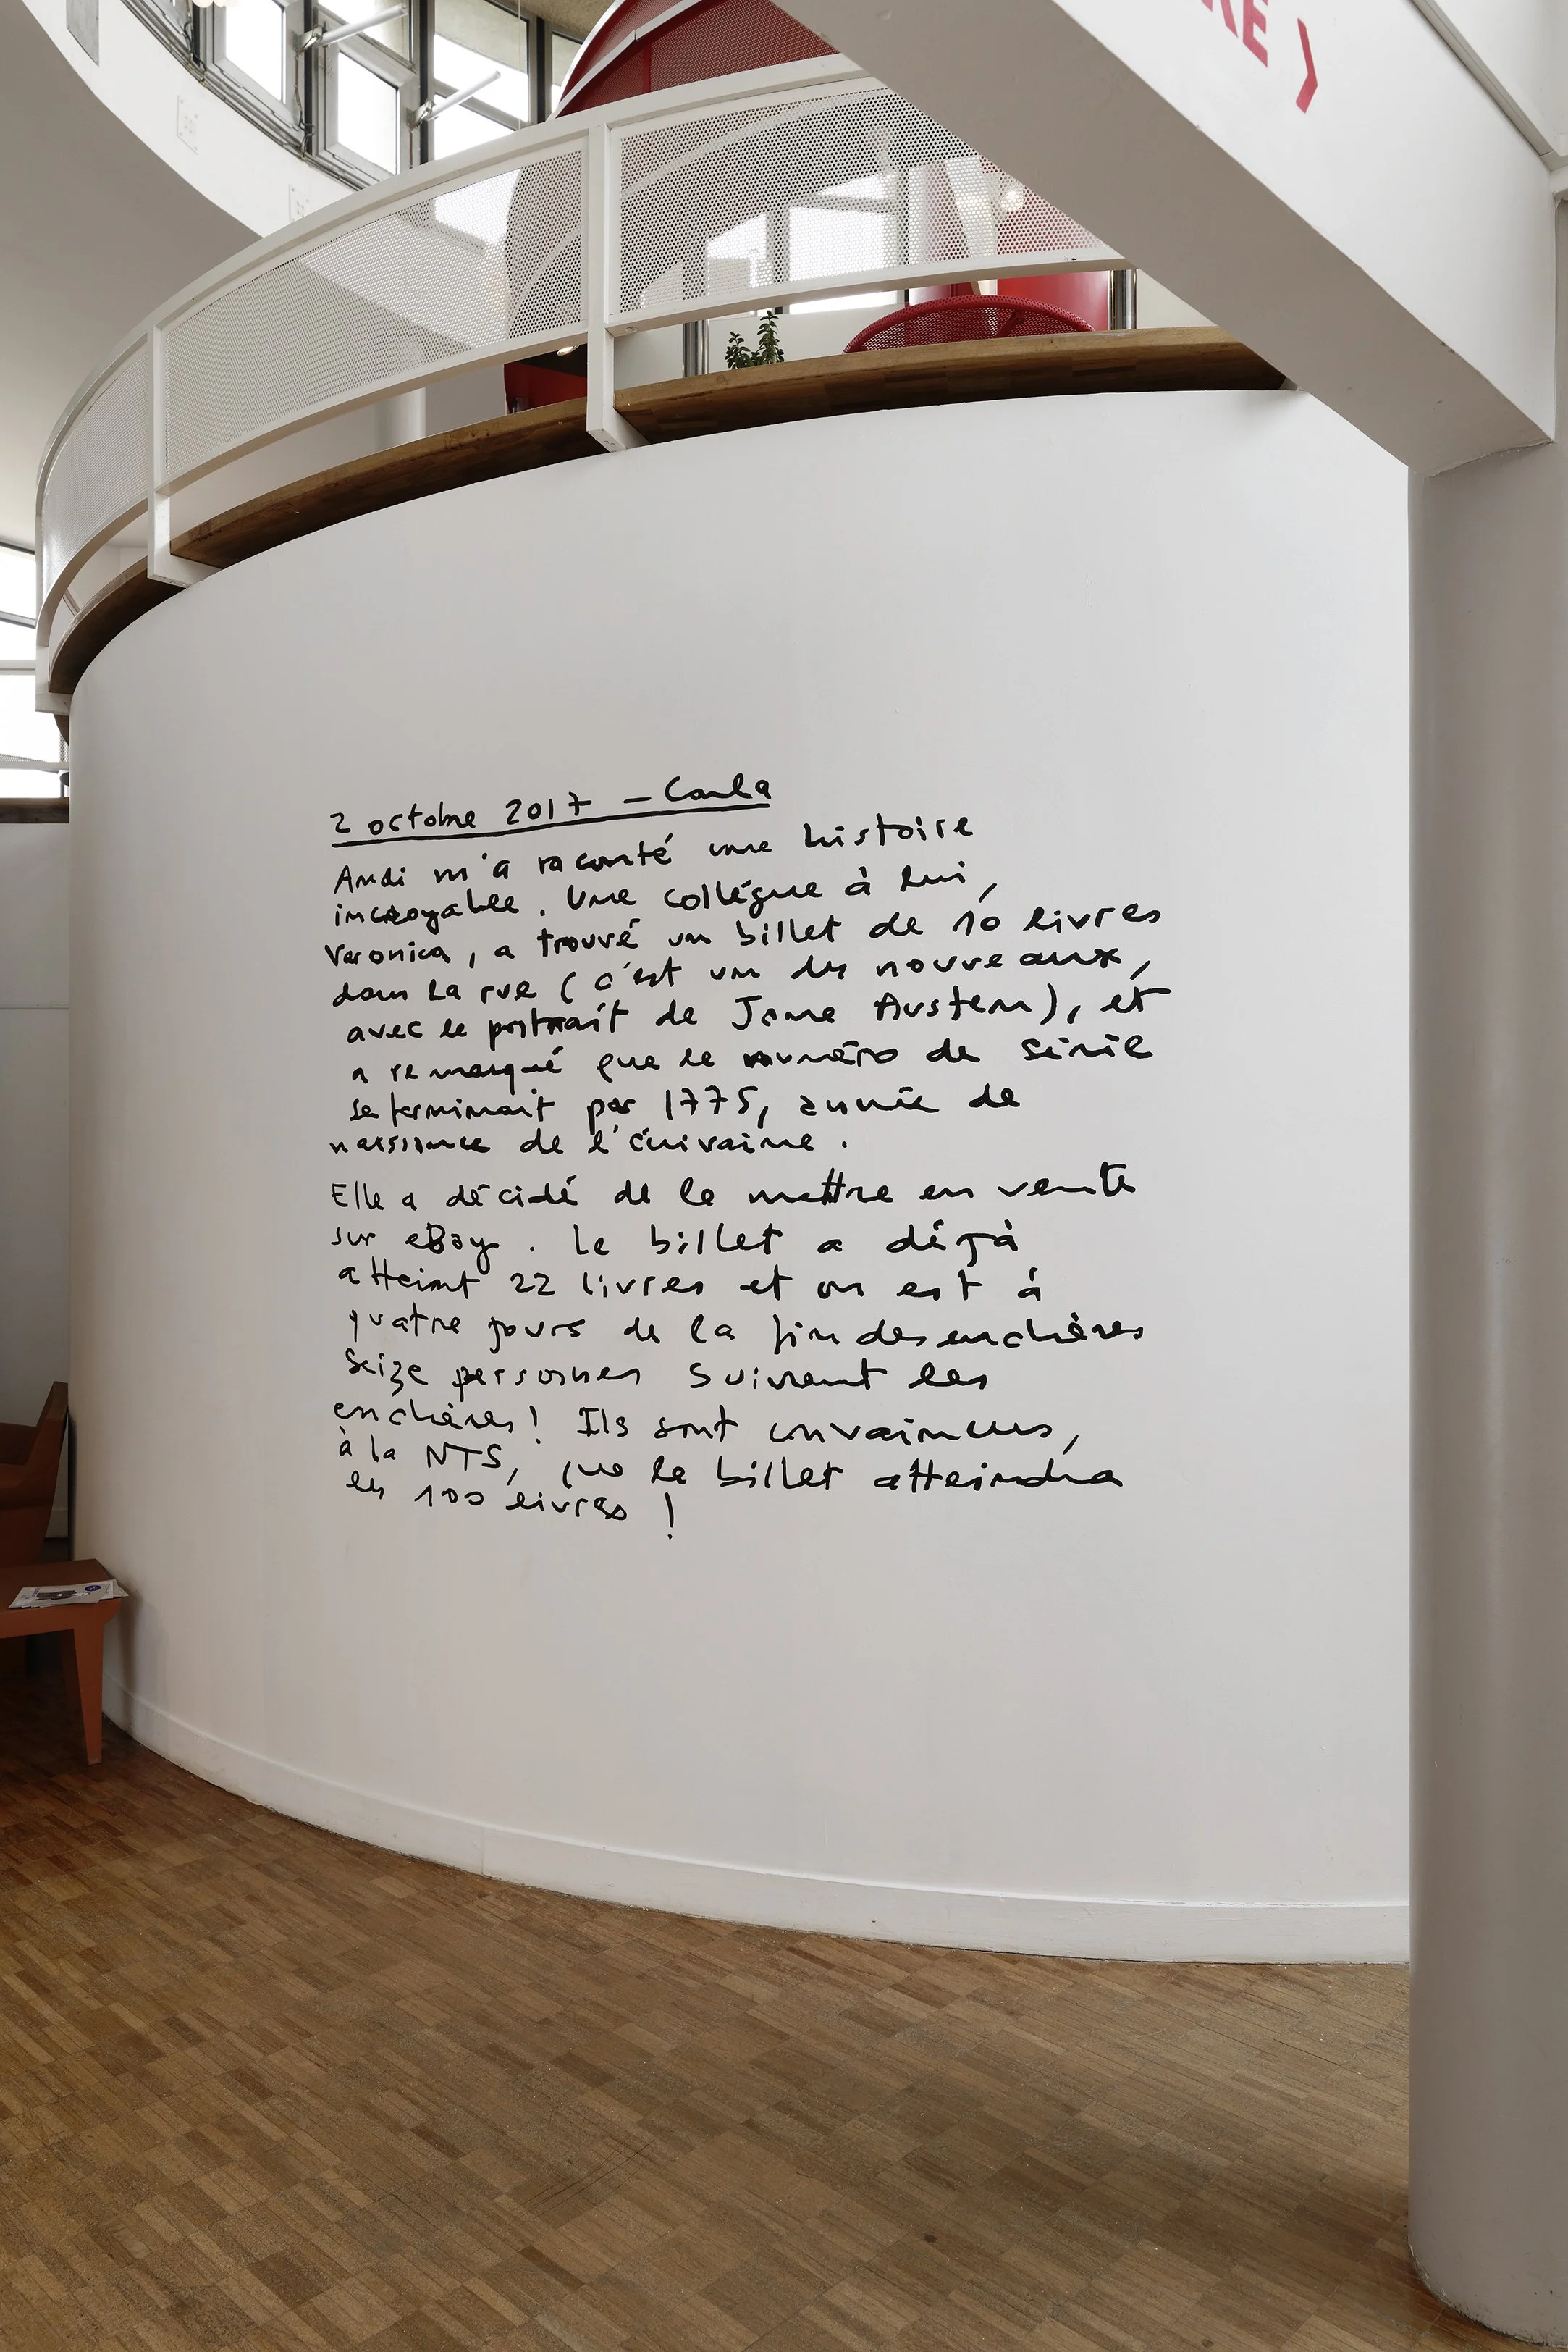 RE >
2 octobre 2017 – Carla
Andi m'a raconté une histoire
incroyable. Une collègue à lui,
Veronica, a trouvé un billet de 10 livres
dans la rue (c'est un des nouveaux,
avec le portrait de Jane Austen), et
a remarqué que le numéro de série
se terminait par 1775, année de
naissance de l'écrivaine.
Elle a décidé de le mettre en vente
sur eBay. Le billet a déjà
atteint 22 livres et on est à
quatre jours de la fin des enchères
Seize personnes suivent les
enchères! Ils sont convaincus,
à la NTS, que le billet atteindra
les 100 livres!